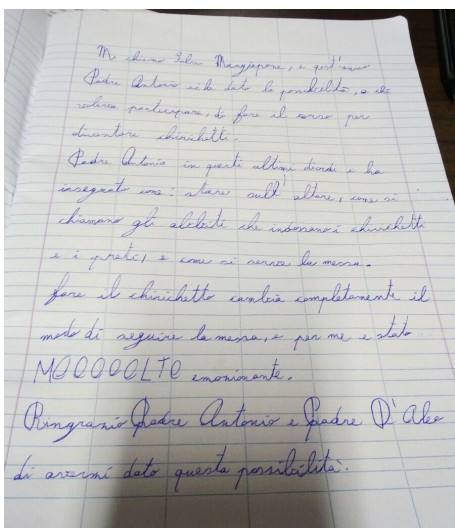 Mi chiamo Mangiapane, e quest'anno
Padre Antonio ci ha dato la possibilità, a chi
voleva partecipare, di fare il corso per
diventare chirichetti.
Padre Antonio in questi ultimi ci ha
insegnato come: stare sull'altare, come si
chiamano gli abiti che indossano i chirichetti
e i preti, e come si serve la messa.
fare il chirichetto cambia completamente il
modo di seguire la messa, e per me e stato
MOOOOOLTO emozionante.
Ringrazio Padre Antonio e Padre D'Aleo
di avermi dato questa possibilità.